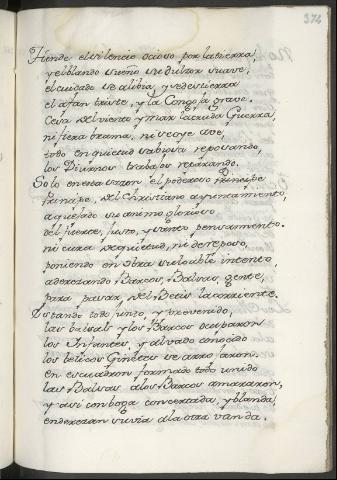 374
Tiende el silencio ocioso por la tierra,
y el blando sueño su dulzor suave,
el cuidado se alibia, y se destierra
el afan triste, y la Congoja grave.
Cesa del viento y mar la cruda Guerra,
ni fiera brama, ni se oye ave,
todo en quietud sabrosa reposando,
los Diurnos trabajos reparando.
Solo en esta sazon el poderoso Principe
Principe, del Christiano ayuntamiento,
aquejado su animo glorioso
del fuerte, justo, y santo pensamiento.
ni cura de quietud, ni de reposo,
poniendo en obra su loable intento
aderezando Barcos, Balsas, gente,
para pasar del Betis la corriente.
Estando todo junto, y prevenido,
las balsas y los Barcos ocuparon
los Infantes, y al vado conocido
los belicos Ginetes se arrojaron.
en escuadron formado todo unido
las Balsas a los Barcos amarraron,
y asi con boga concertada, y blanda,
enderezan su via a la otra vanda.